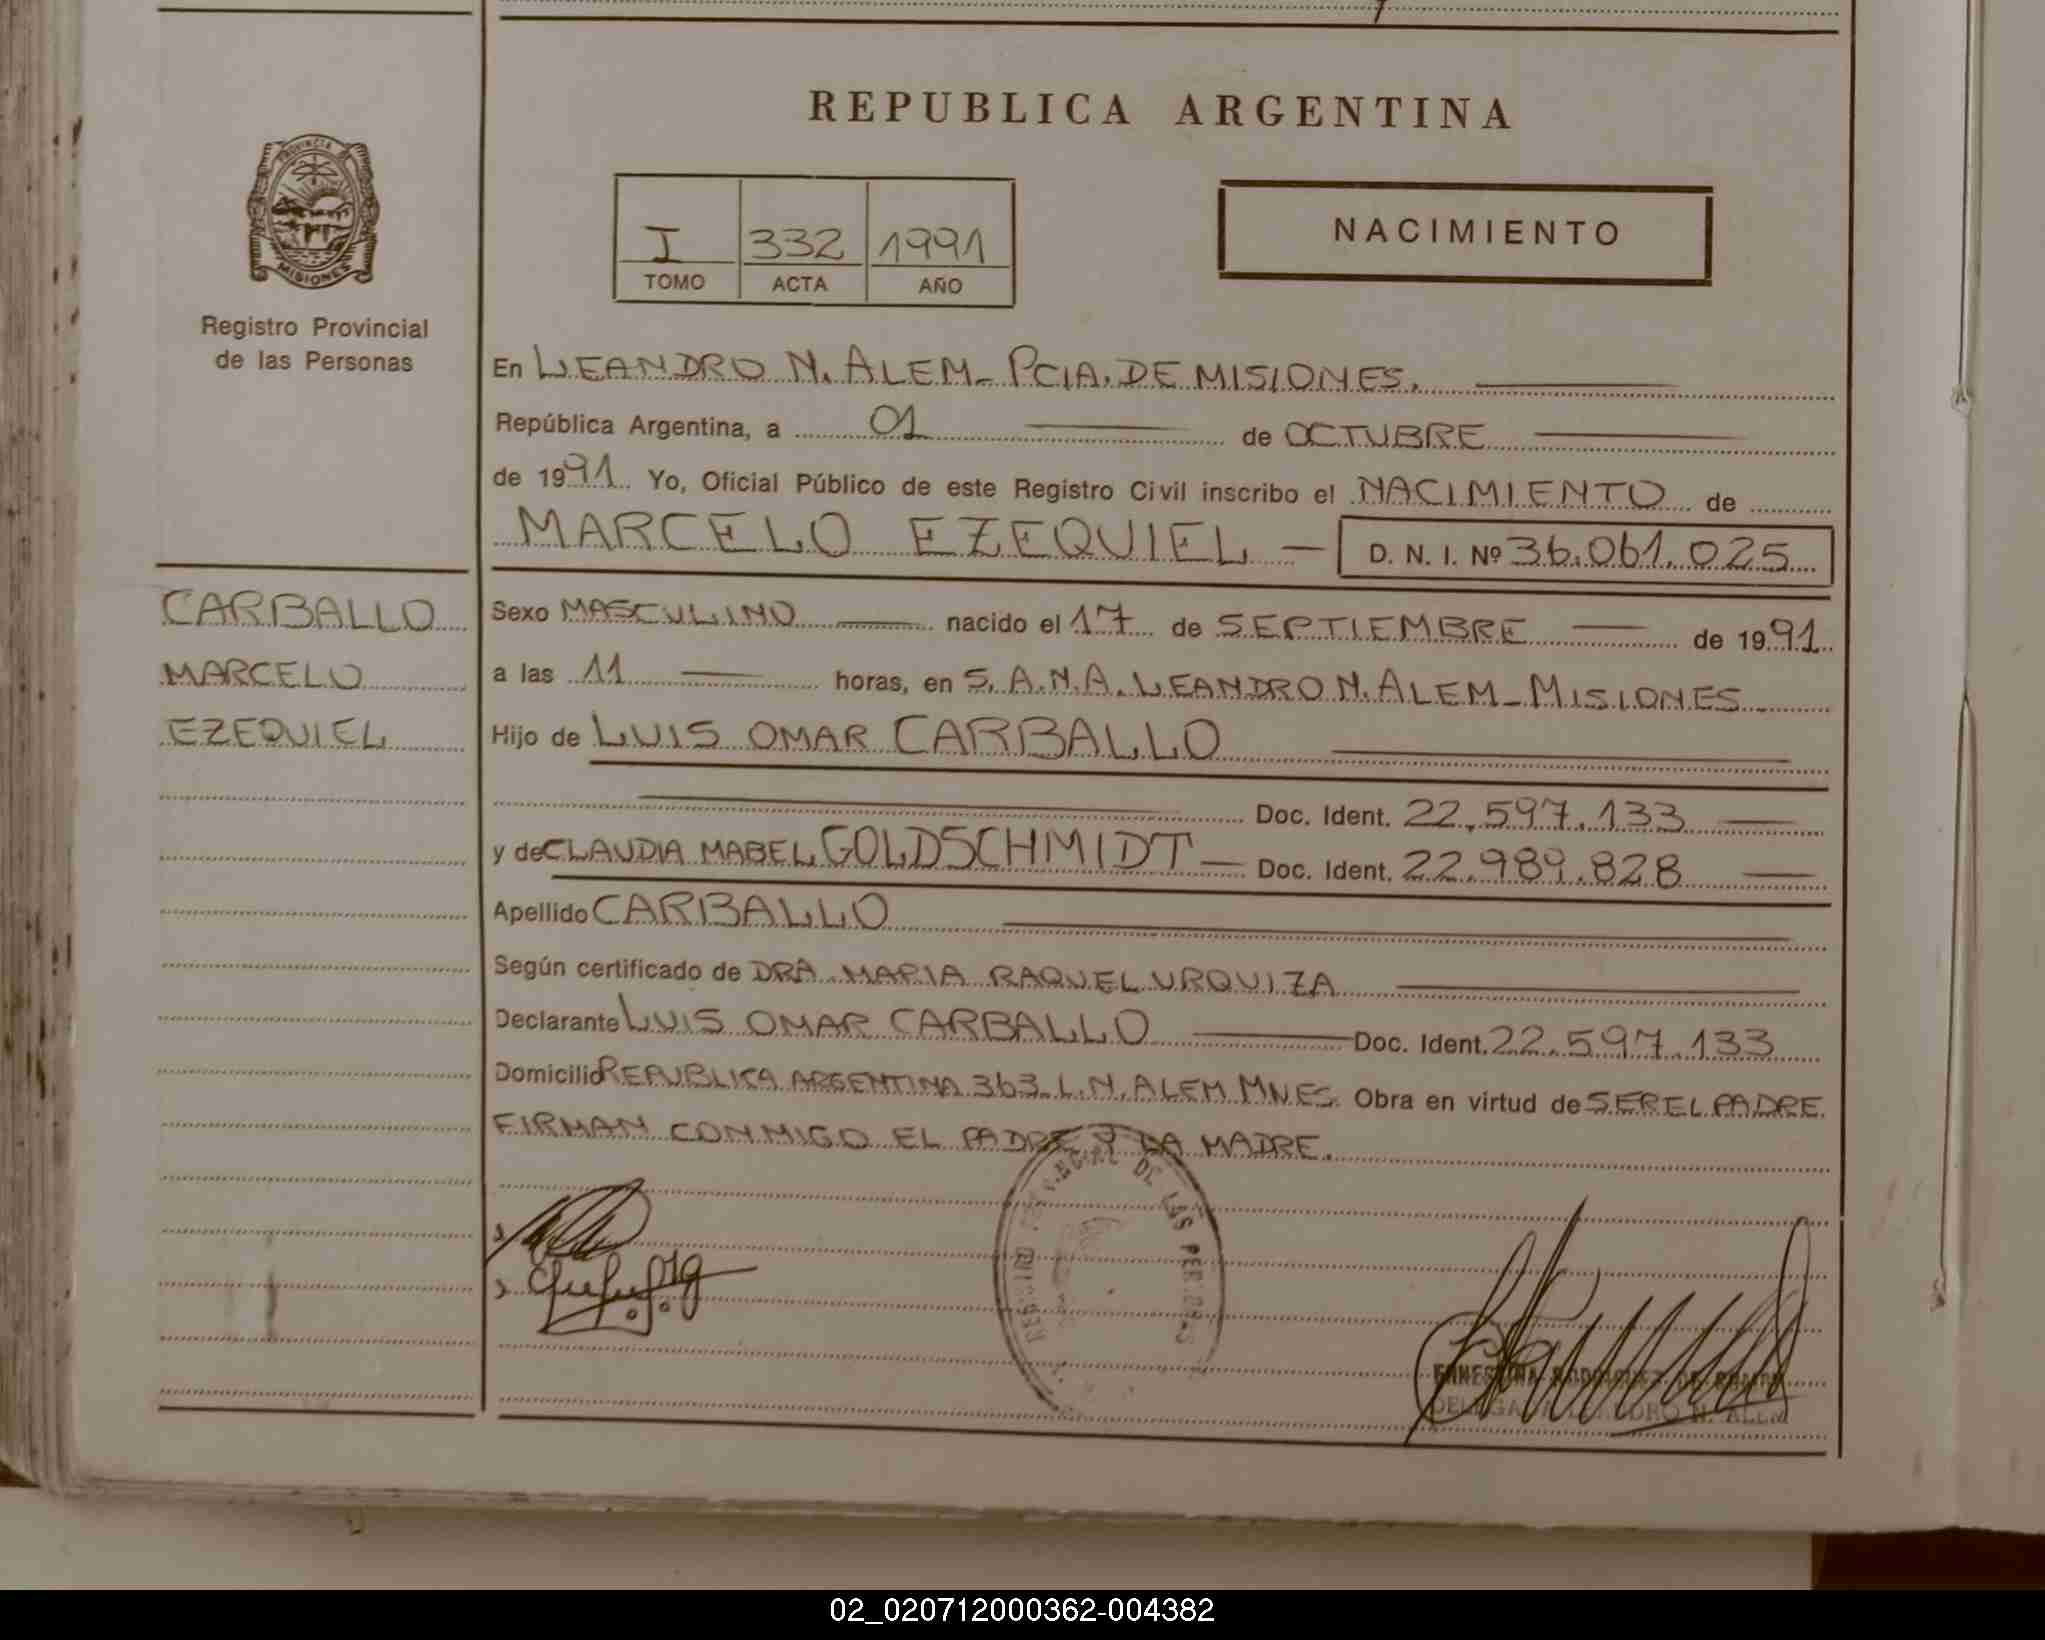 REPUBLICA ARGENTINA
PROVINCIA DE
MISIONES
Registro Provincial
de las Personas
I 332 1991
TOMO ACTA AÑO
NACIMIENTO
En LEANDRO N. ALEM - PCIA. DE MISIONES.
República Argentina, a 01 de OCTUBRE
de 1991. Yo, Oficial Público de este Registro Civil inscribo el NACIMIENTO de
MARCELO EZEQUIEL — D. N. I. Nº 36.061.025
CARBALLO
MARCELO
EZEQUIEL
Sexo MASCULINO nacido el 17 de SEPTIEMBRE de 1991
a las 11 horas, en S.A.N.A. LEANDRO N. ALEM - MISIONES
Hijo de LUIS OMAR CARBALLO
Doc. Ident. 22.597.133
y de CLAUDIA MABEL GOLDSCHMIDT — Doc. Ident. 22.989.828
Apellido CARBALLO
Según certificado de DRA. MARIA RAQUEL URQUIZA
Declarante LUIS OMAR CARBALLO Doc. Ident. 22.597.133
Domicilio REPUBLICA ARGENTINA 363 L.N. ALEM MNES. Obra en virtud de SER EL PADRE
FIRMAN CONMIGO EL PADRE Y LA MADRE.
DE LAS PERSONAS
LEANDRO N. ALEM
02_020712000362-004382